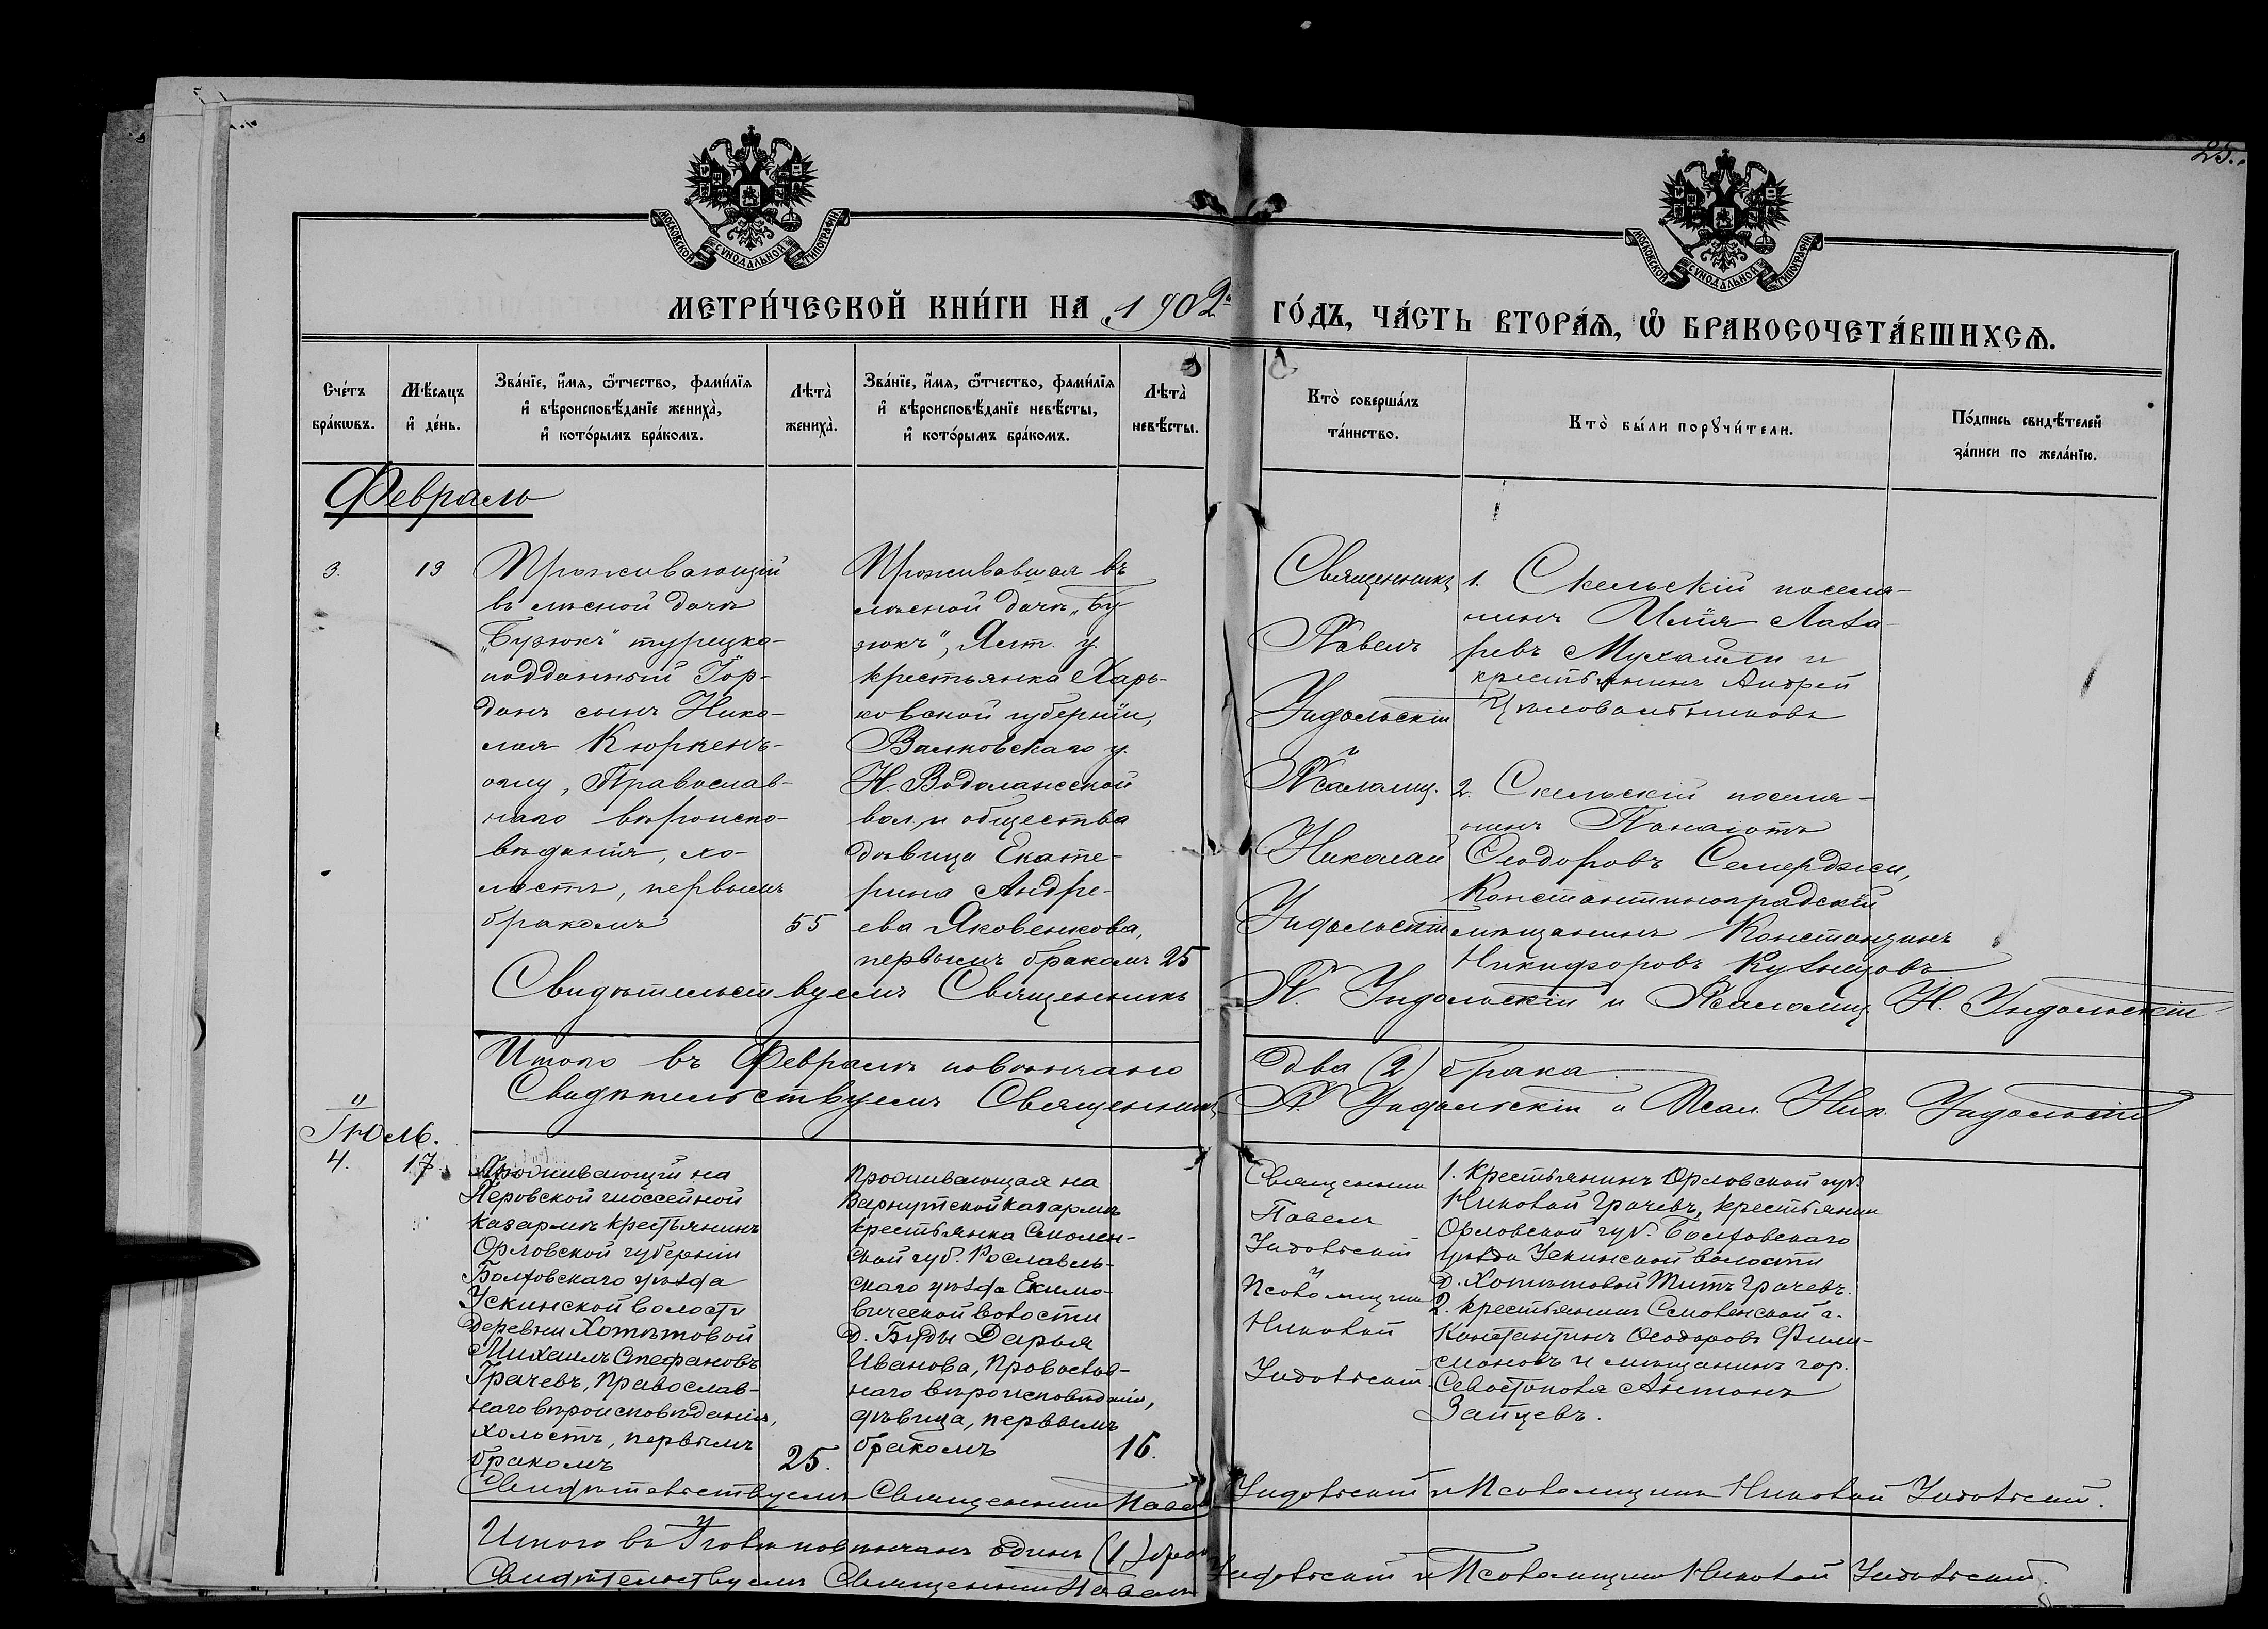 25.
МОСКОВСКОЙ СѴНОДАЛЬНОЙ ТИПОГРАФІИ
МОСКОВСКОЙ СѴНОДАЛЬНОЙ ТИПОГРАФІИ
МЕТРИ́ЧЕСКОЙ КНИ́ГИ НА 1902й ГО́ДЪ, ЧА́СТЬ ВТОРА́Ѧ, Ѡ БРАКОСОЧЕТА́ВШИХСѦ.
Сче́тъ бра́кѡвъ.
Мѣ́сяцъ и҆ де́нь.
Зва́нїе, и҆́мя, ѻ҆́тчество, фами́лїя
и҆ вѣроисповѣ́данїе жениха̀,
и҆ кото́рымъ бра́комъ.
Лѣта̀
жениха̀.
Зва́нїе, и҆́мя, ѻ҆́тчество, фами́лїя
и҆ вѣроисповѣ́данїе невѣ́сты,
и҆ кото́рымъ бра́комъ.
Лѣта̀
невѣ́сты.
Кто̀ соверша́лъ
та́инство.
Кто̀ бы́ли порꙋчи́тели.
По́дпись свидѣ́телей
за́писи по жела́нїю.
Февраль
3.
13
Проживающій
въ лѣсной дачѣ
„Бузюкъ" турецко-
подданный Іор-
данъ сынъ Нико-
лая
оглу, Православ-
наго вѣроиспо-
вѣданія, хо-
лостъ, первымъ
бракомъ
55
Проживавшая въ
лѣсной дачѣ „Бу-
зюкъ", Ялт. у.
крестьянка Харь-
ковской губерніи,
Валковскаго у.
Н. Водолажской
вол. и общества
дѣвица Екате-
рина Андре-
ева Яковенкова,
первымъ бракомъ
25
Священникъ
Павелъ
Индольскій
и
Псаломщ.
Николай
Индольскій
1. Скельскій поселя-
нинъ Илія Лаза-
ревъ Мухайли и
крестьянинъ Андрей
Цѣловальниковъ
2. Скельскій поселя-
нинъ Панаіотъ
Ѳеодоровъ Семерджи,
Константиноградскій
мѣщанинъ Константинъ
Никифоровъ Кузнецовъ
Свидѣтельствуемъ Священникъ П. Индольскій и Псаломщ. Н. Индольскій
Итого въ Февралѣ повѣнчано два (2) брака.
Свидѣтельствуемъ Священникъ П. Индольскій и Псал. Ник. Индольскій
Іюль.
4.
17.
Проживающій на
Перовской шоссейной
казармѣ крестьянинъ
Орловской губерніи
Болховскаго уѣзда
Ускинской волости
деревни Хотѣтовой
Михаилъ Стефановъ
Грачевъ, православ-
наго вѣроисповѣданія,
холостъ, первымъ
бракомъ
25.
Проживающая на
Варнутской казармѣ
крестьянка Смолен-
ской губ. Рославль-
скаго уѣзда Екимо-
вической волости
д. Буды Дарья
Иванова, православ-
наго вѣроисповѣданія,
дѣвица, первымъ
бракомъ
16.
Священникъ
Павелъ
Индольскій
и
Псаломщикъ
Николай
Индольскій.
1. Крестьянинъ Орловской губ.
Николай Грачевъ, крестьянин
Орловской губ. Болховскаго
уѣзда Ускинской волости
д. Хотѣтовой Титъ Грачевъ.
2. Крестьянинъ Смоленской г.
Константинъ Ѳеодоровъ Фили-
моновъ и мѣщанинъ гор.
Севастополя Антонъ
Зайцевъ.
Свидѣтельствуемъ Священникъ Павелъ Индольскій и Псаломщикъ Николай Индольскій.
Итого въ Іюлѣ повѣнчанъ одинъ (1) бракъ
Свидѣтельствуемъ Священникъ Павелъ Индольскій и Псаломщикъ Николай Индольскій.